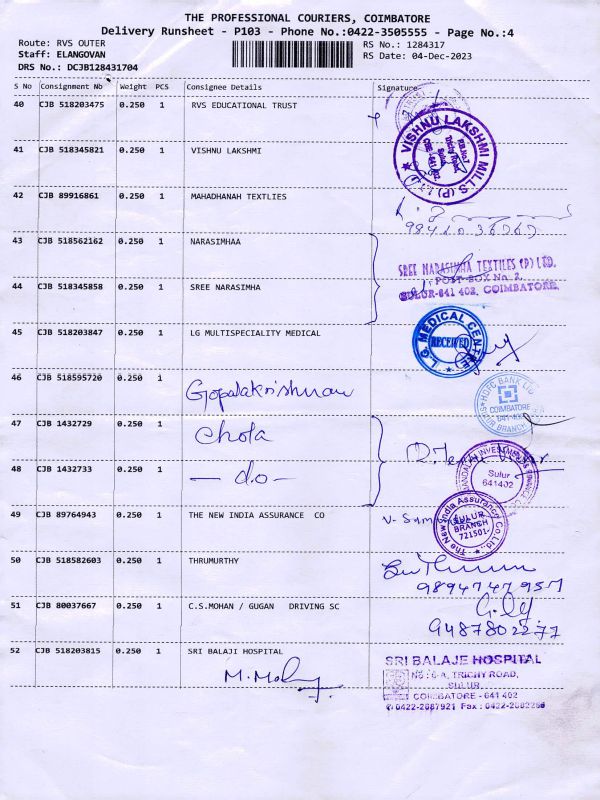 THE PROFESSIONAL COURIERS, COIMBATORE
Delivery Runsheet - P103 - Phone No.:0422-3505555 - Page No.:4
Route: RVS OUTER
Staff: ELANGOVAN
DRS No.: DCJB128431704
RS No.: 1284317
RS Date: 04-Dec-2023
S No Consignment Nb Weight PCS Consignee Details Signature
40 CJB 518203475 0.250 1 RVS EDUCATIONAL TRUST
41 CJB 518345821 0.250 1 VISHNU LAKSHMI
VISHNU LAKSHMI MILLS (P) LTD
42 CJB 89916861 0.250 1 MAHADHANAH TEXTLIES
43 CJB 518562162 0.250 1 NARASIMHAA
SREE NARASIMHA TEXTILES (P) LTD.
POST BOX No. 2,
SULUR-641 402, COIMBATORE.
44 CJB 518345858 0.250 1 SREE NARASIMHA
45 CJB 518203847 0.250 1 LG MULTISPECIALITY MEDICAL
L.G. MEDICAL CENTRE
RECEIVED
46 CJB 518595720 0.250 1 Gopalakrishnan
HDFC BANK LTD
COIMBATORE
641 402
SULUR BRANCH
47 CJB 1432729 0.250 1 Chola
48 CJB 1432733 0.250 1 - do -
Sulur
641402
49 CJB 89764943 0.250 1 THE NEW INDIA ASSURANCE CO
The New India Assurance Co. Ltd.
SULUR
BRANCH
721501
50 CJB 518582603 0.250 1 THRUMURTHY
9894747957
51 CJB 80037667 0.250 1 C.S.MOHAN / GUGAN DRIVING SC
9487802277
52 CJB 518203815 0.250 1 SRI BALAJI HOSPITAL
SRI BALAJE HOSPITAL
No : 6-A, TRICHY ROAD,
SULUR,
COIMBATORE - 641 402